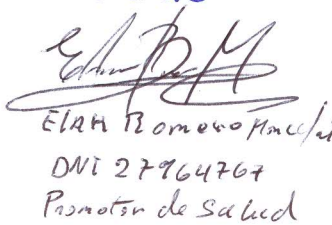 Elah Romero
DNI 27964767
Promotor de Salud